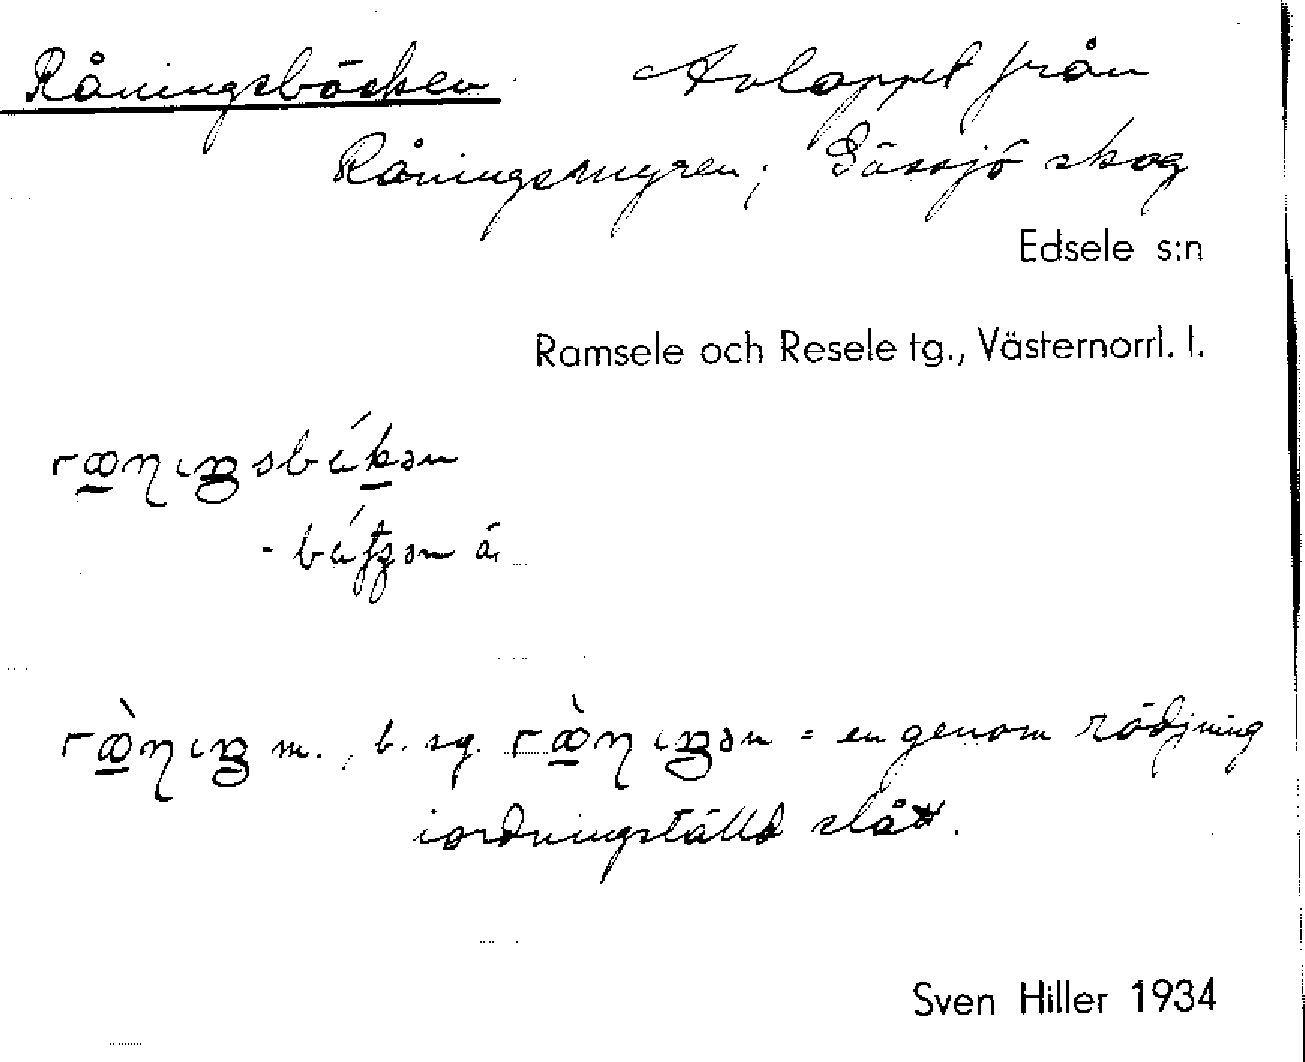 Råningsbäcken Avloppet från
Råningsmyren; Gässjö skog
Edsele s:n
Ramsele och Resele tg., Västernorrl. l.
m., b. sg. = en genom rödjning
iordningställd slått.
Sven Hiller 1934